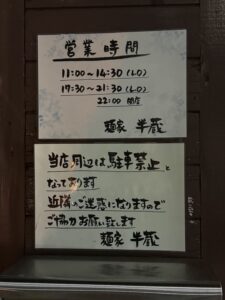 営業時間
11:00～14:30(L.O)
17:30～21:30(L.O)
22:00 閉店
麺家 半蔵
当店周辺は、駐車禁止と
なっております
近隣のご迷惑になりますので
ご協力お願い致します
麺家 半蔵